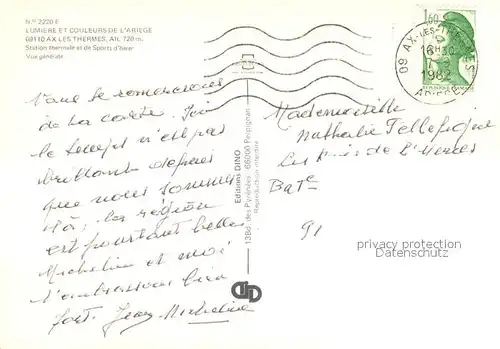 N.º 2220 E
LUMIERE ET COULEURS DE L'ARIEGE
09110 AX LES THERMES, Alt. 720 m.
Station thermale et de Sports d'hiver
Vue générale
Nous te remercions
de ta carte. Ici
le temps n'est pas
brillant depuis
que nous sommes
là, la région
est pourtant belle
Micheline et moi
t'embrassons bien
fort. Jean Micheline
Editions DINO
13Bd. des Pyrénées - 66000 Perpignan
Reproduction interdite
1,60
09 AX-LES-THERMES
16H30
1982
ARIEGE
Mademoiselle
Nathalie
Les de l'
Bat
91
privacy protection
Datenschutz